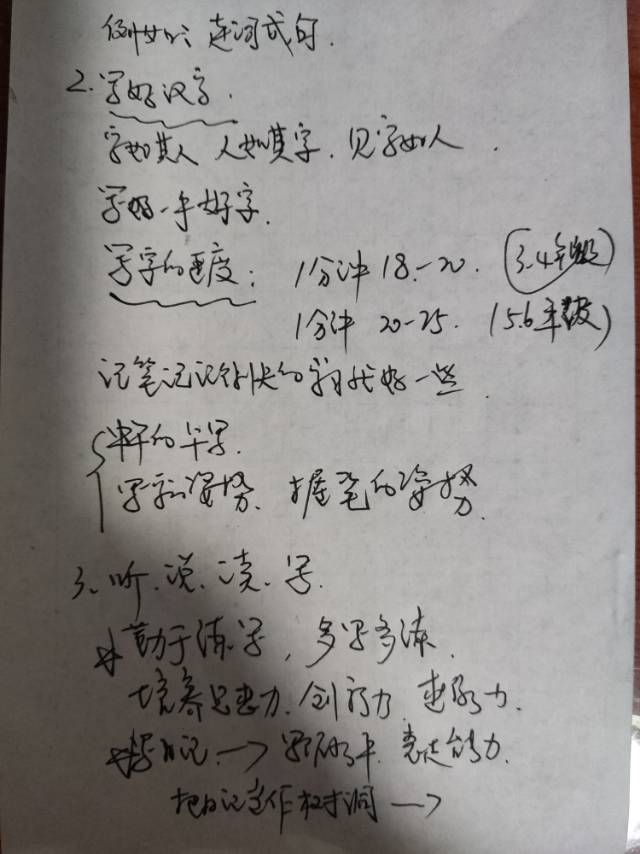 例如：连词成句.
2. 写好汉字.
字如其人 人如其字. 见字如人.
写好一手好字.
写字的速度: 1分钟 18-20. (3.4年级)
1分钟 20-25. (5.6年级)
记笔记记得快的 好一些.
的
写字的姿势. 握笔的姿势.
3、听.说.读.写.
勤于练写, 多写多练.
培养思考力.创新力.
写日记. → 表达能力.
把日记 →